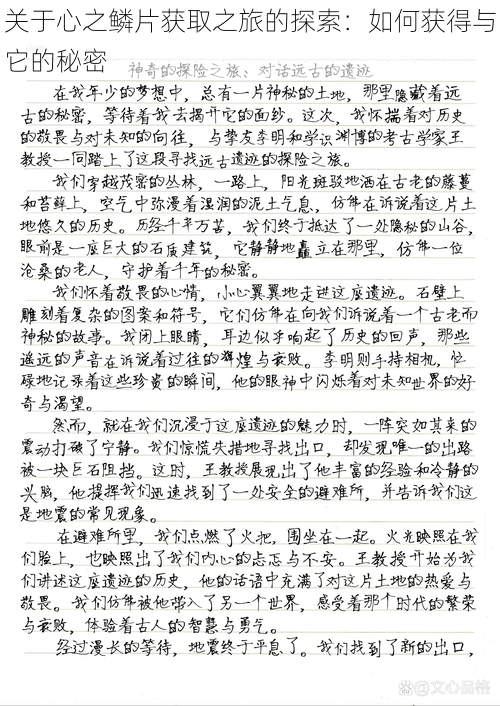 关于心之鳞片获取之旅的探索：如何获得与
它的秘密
神奇的探险之旅、对话远古的遗迹
在我年少的梦想中，总有一片神秘的土地，那里隐藏着远
古的秘密，等待着我去揭开它的面纱。这次，我怀揣着对历史
的敬畏与对未知的向往，与挚友李明和学识渊博的考古学家王
教授一同踏上了这段寻找远古遗迹的探险之旅。
我们穿越茂密的丛林，一路上，阳光斑驳地洒在古老的藤蔓
和苔藓上，空气中弥漫着湿润的泥土气息，仿佛在诉说着这片土
地悠久的历史。历经千辛万苦，我们终于抵达了一处隐秘的山谷，
眼前是一座巨大的石质建筑，它静静地矗立在那里，仿佛一位
沧桑的老人，守护着千年的秘密。
我们怀着敬畏的心情，小心翼翼地走进这座遗迹。石壁上
雕刻着复杂的图案和符号，它们仿佛在向我们诉说着一个古老而
神秘的故事。我闭上眼睛，耳边似乎响起了历史的回声，那些
遥远的声音在诉说着过往的辉煌与衰败。李明则手持相机，忙
碌地记录着这些珍贵的瞬间，他的眼神中闪烁着对未知世界的好
奇与渴望。
然而，就在我们沉浸于这座遗迹的魅力时，一阵突如其来的
震动打破了宁静。我们惊慌失措地寻找出口，却发现唯一的出路
被一块巨石阻挡。这时，王教授展现出了他丰富的经验和冷静的
头脑，他提择我们迅速找到了一处安全的避难所，并告诉我们这
是地震的常见现象。
在避难所里，我们点燃了火把，围坐在一起。火光映照在我
们脸上，也映照出了我们内心的忐忑与不安。王教授开始为我
们讲述这座遗迹的历史，他的话语中充满了对这片土地的热爱与
敬畏。我们仿佛被他带入了另一个世界，感受着那个时代的繁荣
与衰败，体验着古人的智慧与勇气。
经过漫长的等待，地震终于平息了。我们找到了新的出口，
@文心品格